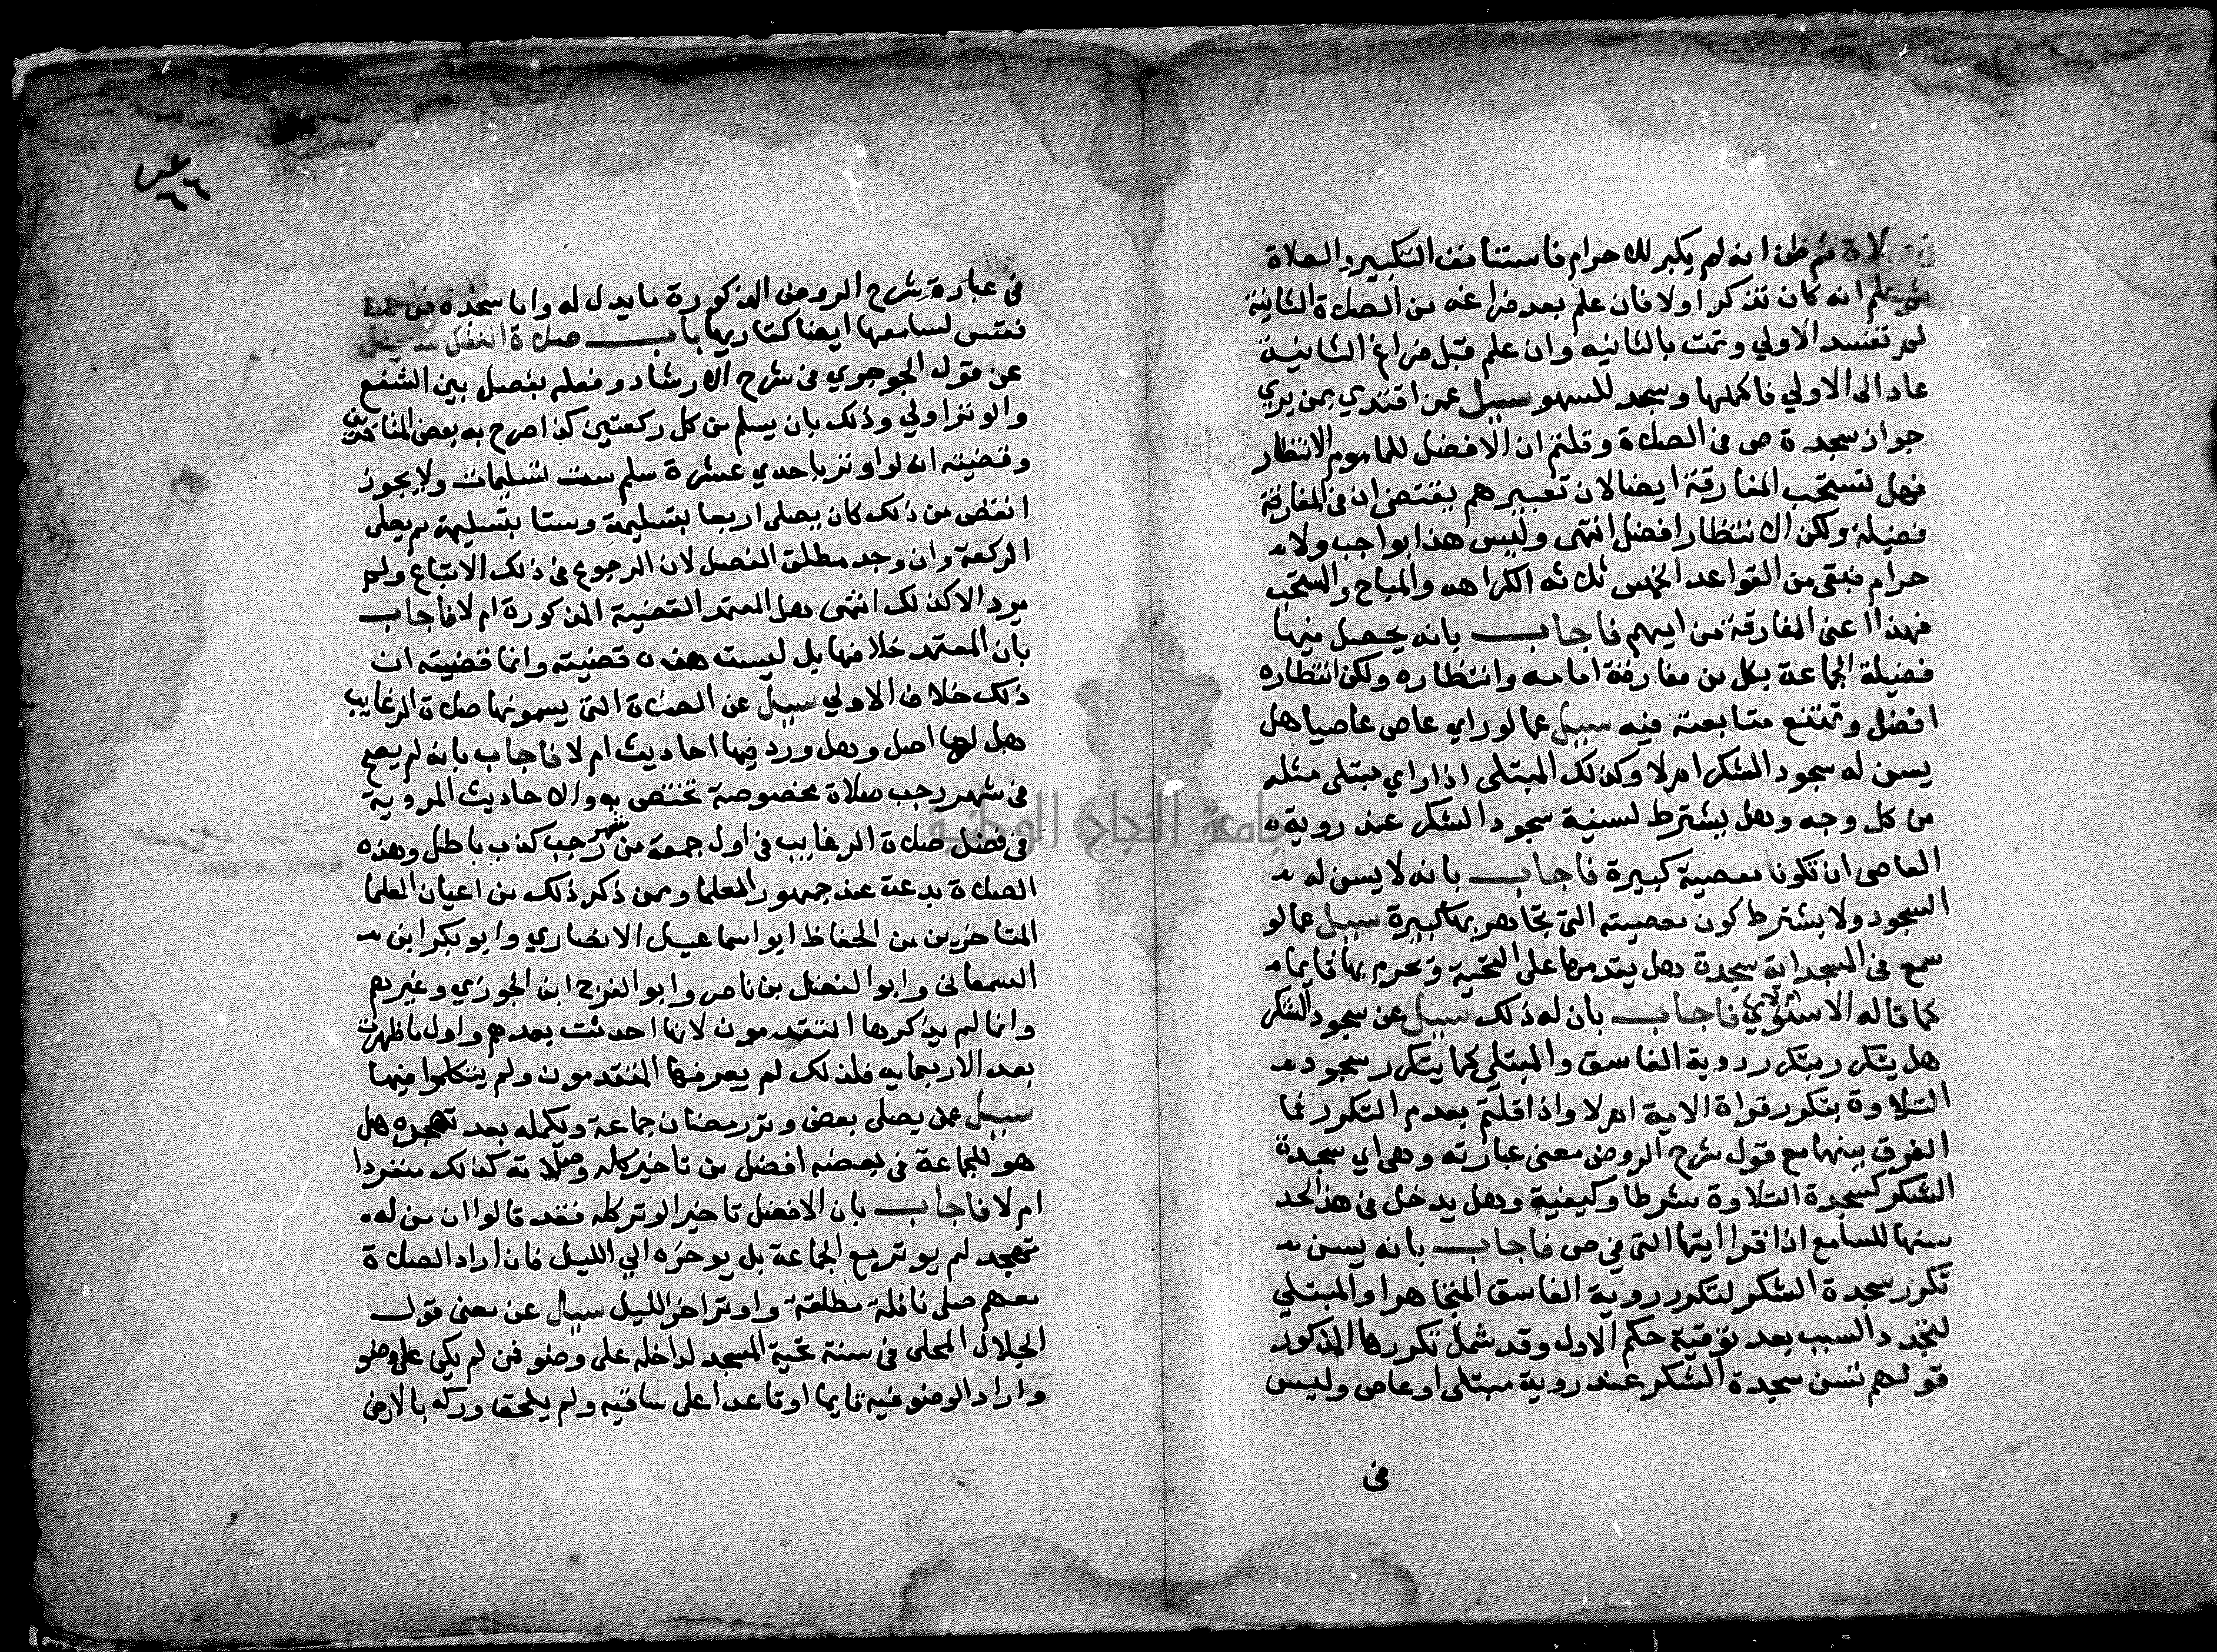 صلاة ثم ظن انه لم يكبر للاحرام فاستنانف التكبير والصلاة
ثم علم انه كان تذكر اولا فان علم بعد فراغه من الصلاة الثانية
لم تفسد الاولي وتمت بالثانيه وان علم قبل فراغ الثانية
عاد الى الاولي فاكملها وسجد للسهو سيل عمن اقتدي بمن يري
جواز سجدة ص في الصلاة وقلتم ان الافضل للماموم الانتظار
فهل تستحب المفارقة ايضا لان تعبيرهم يقتضي ان في المفارقة
فضيلة ولكن الانتظار افضل انتهى وليس هذا بواجب ولا
حرام فبقي من القواعد الخمس ثلاثه الكراهه والمباح والمستحب
فهذا اعني المفارقة من ايهم فاجاب بانه يحصل فيها
فضيلة الجماعة بكل من مفارقة امامه وانتظاره ولكن انتظاره
افضل وتمتنع متابعته فيه سيل عما لو راي عاص عاصيا هل
يسن له سجود الشكر ام لا وكذلك المبتلى اذا راي مبتلى مثله
من كل وجه وهل يشترط لسنية سجود الشكر عند روية
العاصي ان تكون معصية كبيرة فاجاب بانه لا يسن له
السجود ولا يشترط كون معصيته التي تجاهر بها كبيرة سيل عما لو
سمع في المسجد اية سجدة هل يقدمها على التحية ويحرم بها قايما
كما قاله الاسنوي ام لا فاجاب بان له ذلك سيل عن سجود الشكر
هل يتكرر بتكرر روية الفاسق والمبتلى كما يتكرر سجود
التلاوة بتكرر قراة الاية ام لا واذا قلتم بعدم التكرر فما
الفرق بينهما مع قول شرح الروض معنى عبارته وهي اي سجدة
الشكر كسجدة التلاوة شرطا وكيفية وهل يدخل في هذا الحد
سنها للسامع اذا قرا ايتها التي في ص فاجاب بانه يسن
تكرر سجدة الشكر لتكرر روية الفاسق المتجاهر او المبتلي
لتجدد السبب بعد توفية حكم الاول وقد شمل تكررها المذكور
قولهم تسن سجدة الشكر عند روية مبتلى او عاص وليس
في
٦٦
في عبارة شرح الروض المذكورة ما يدل له واما سجدة ص
فتسن لسامعها ايضا كقاريها باب صلاة النفل سيل
عن قول الجوجري في شرح الارشاد وفعله بفصل بين الشفع
والوتر اولي وذلك بان يسلم من كل ركعتين كذا صرح به بعض المتاخرين
وقضيته انه لو اوتر باحدي عشرة سلم ست تسليمات ولا يجوز
انقص من ذلك كان يصلى اربعا بتسليمة وستا بتسليمة ثم يصلى
الركعة وان وجد مطلق الفصل لان الرجوع في ذلك الاتباع ولم
يرد الا كذلك انتهى وهل المعتمد القضية المذكورة ام لا فاجاب
بان المعتمد خلافها بل ليست هذه قضيته وانما قضيته ان
ذلك خلاف الاولي سيل عن الصلاة التي يسمونها صلاة الرغايب
هل لها اصل وهل ورد فيها احاديث ام لا فاجاب بانه لم يصح
في شهر رجب صلاة مخصوصة تختص به والاحاديث المروية
في فضل صلاة الرغايب في اول جمعة من شهر رجب كذب باطل وهذه
الصلاة بدعة عند جمهور العلما وممن ذكر ذلك من اعيان العلما
المتاخرين من الحفاظ ابو اسماعيل الانصاري وابو بكر ابن
السمعاني وابو الفضل بن ناصر وابو الفرج ابن الجوزي وغيرهم
وانما لم يذكرها المتقدمون لانها احدثت بعدهم واول ما ظهرت
بعد الاربعمايه فلذلك لم يعرفها المتقدمون ولم يتكلموا فيها
سيل عمن يصلى بعض وتر رمضان جماعة ويكمله بعد تهجده هل
هو للجماعة في بعضه افضل من تاخير كله وصلاته كذلك منفردا
ام لا فاجاب بان الافضل تاخير الوتر كله فقد قالوا ان من له
تهجد لم يوتر مع الجماعة بل يوخره الي الليل فان اراد الصلاة
معهم صلى نافلة مطلقة واوتر اخر الليل سيل عن معنى قول
الجلال المحلى في سنة تحية المسجد لداخله على وضو فمن لم يكن على وضو
واراد الوضو فيه قايما او قاعدا على ساقيه ولم يلحق وركه بالارض